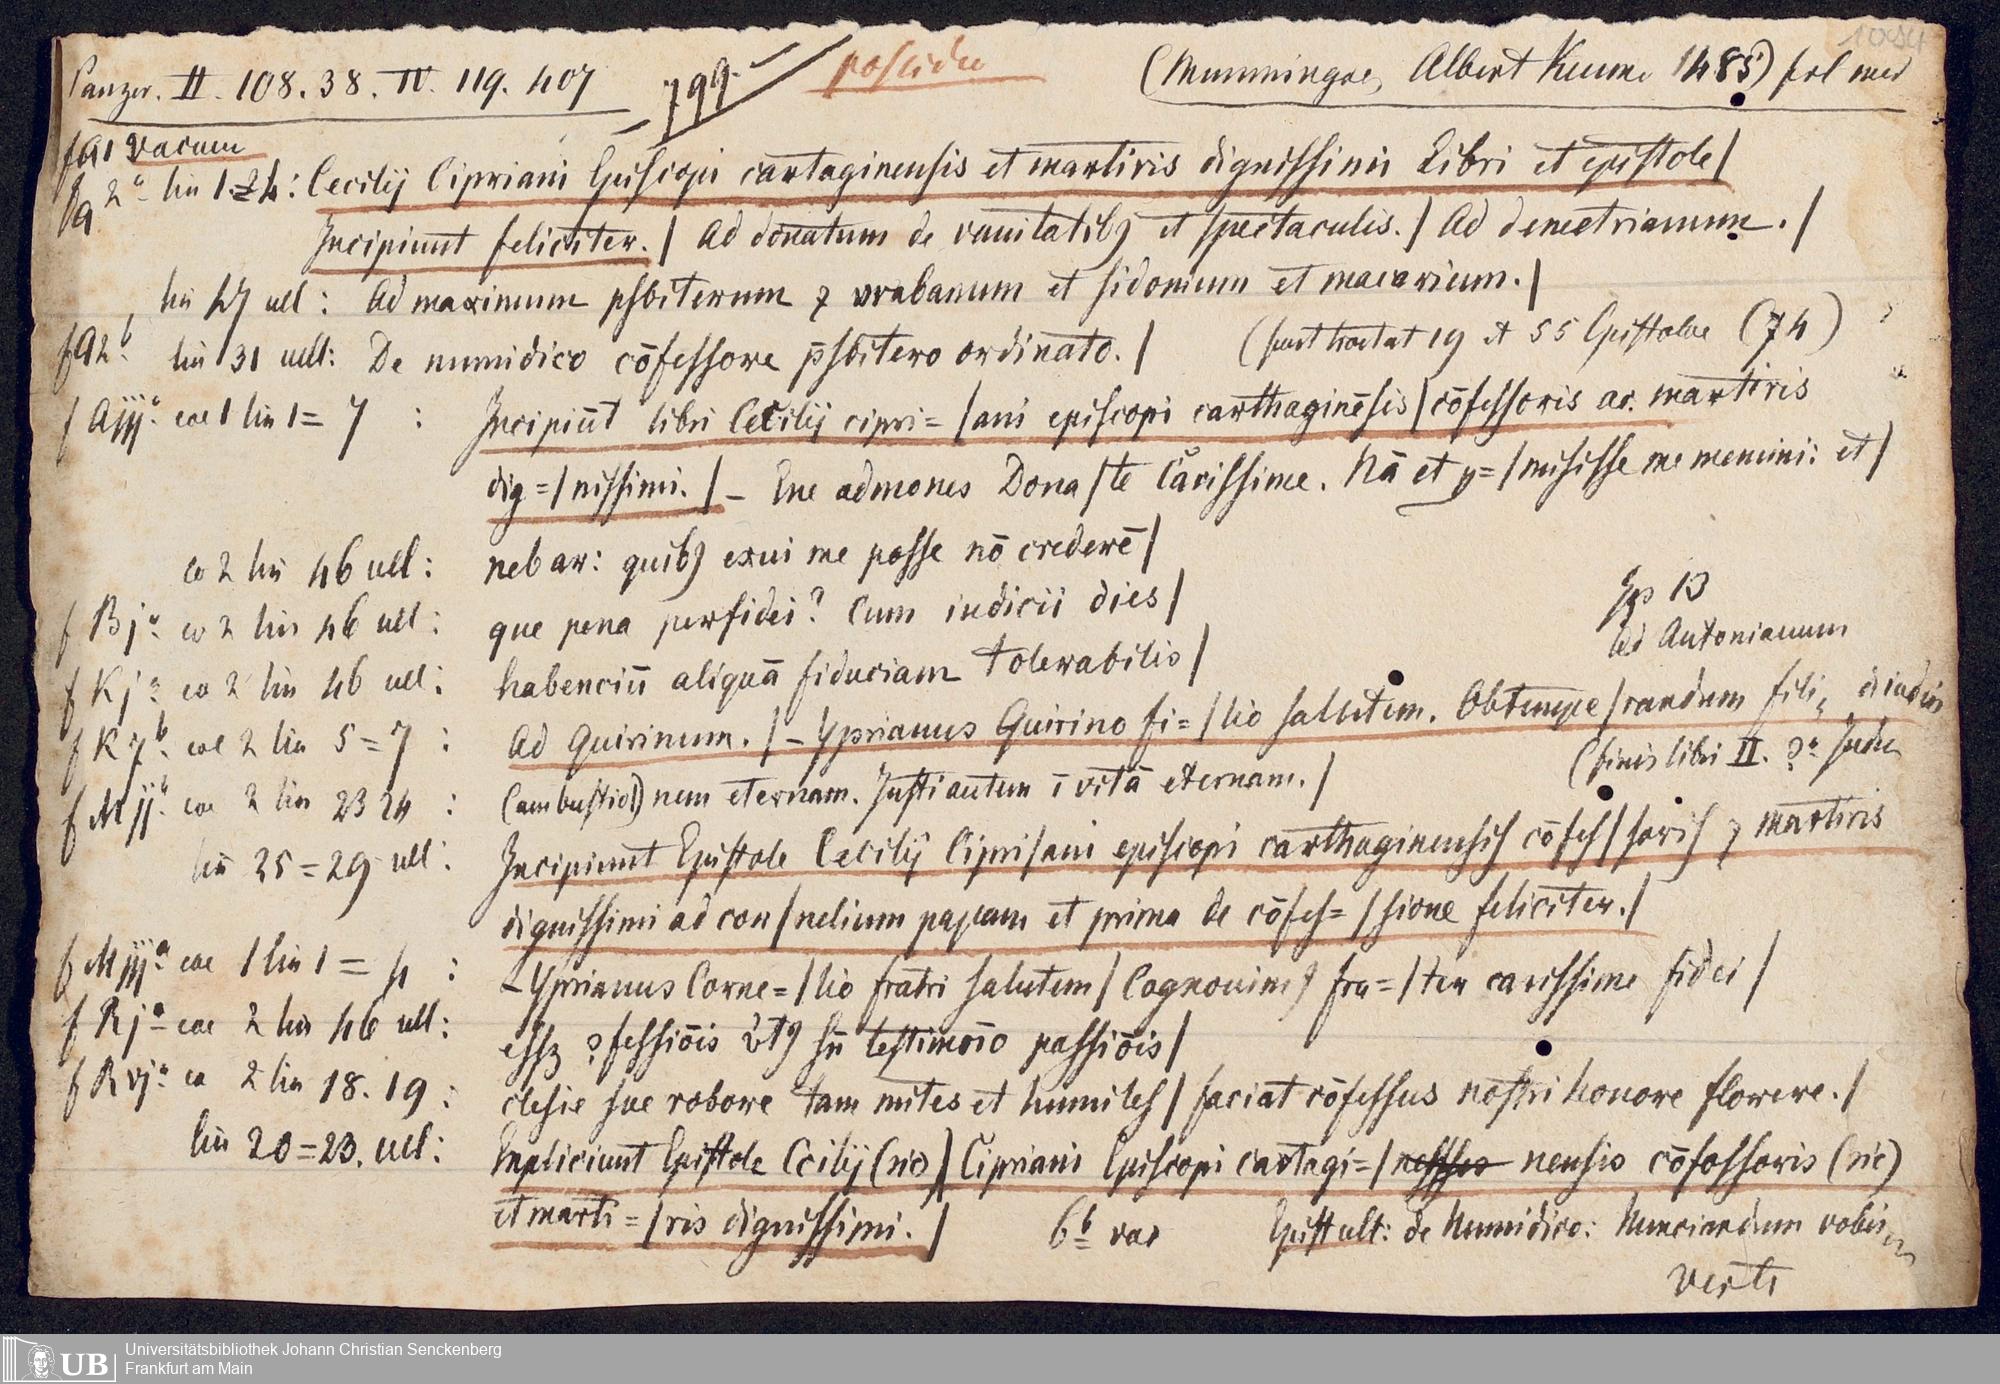 1084
Panzer. II. 108. 38. IV. 119. 407 799. possidee (Memmingae, Albert Kunne 1485) fol med
fa1 vacuum
fa 2a lin 1=24: Cecilij Cipriani Episcopi cartaginensis et martiris dignissimi Libri et epistole/
Incipiunt feliciter. / Ad donatum de vanitatibꝫ et spectaculis. / Ad demetrianum. /
lin 47 ult: Ad maximum psbiterum ⁊ vrabanum et sidonium et macarium. /
fa2b lin 31 ult: De numidico cōfessore p̄sbitero ordinato. / (sunt tractat 19 et 55 Epistolae (74)
f Aiija col 1 lin 1=7 : Incipiūt libri Cecilij cipri=/ani episcopi carthaginēsis/cōfessoris ac martiris
dig=/nissimi. / – Ene admones Dona/te Carissime. Nā et p=/misisse me memini: et/
co 2 lin 46 ult: nebar: quibꝫ exui me posse nō crederē/
f Bja co 2 lin 46 ult: que pena perfidei? Cum iudicii dies/
Ep 13
f Kja co 2 lin 46 ult: habenciū aliquā fiduciam tolerabilis/ ad Antonianum
f K7b col 2 lin 5=7 : Ad Quirinum. / – Yprianus Quirino fi=/lio salutem. Obtempe/randum fili
f Mijb col 2 lin 23 24 : Combustio/nem eternam. Justi autem ī vitā eternam. / (finis libri II.
lin 25=29 ult: Incipiunt Epistole Cecilij Cipri/ani episcopi carthaginensis cōfes/soris ⁊ martiris
dignissimi ad cor/nelium papam et prima de cōfes=/sione feliciter. /
f Miija col 1 lin 1=4 : – Yprianus Corne=/lio fratri salutem/ Cognouimꝰ fra=/ter carissime fidei/
f Rja col 2 lin 46 ult: essꝫ ꝯfessiōis vtꝫ sū testimōio passiōis/
f Rvja co 2 lin 18. 19 : clesie sue robore tam mites et humiles/ faciat cōfessus nostri honore florere. /
lin 20=23. ult: Expliciunt Epistole Ccilij (sic)/ Cipriani Episcopi cartagi=/nensis cōfossoris (sic)
et marti=/ris dignissimi. / 6b vac Epist ult: de Numidico: Nunciandum vobis
verte
UB Universitätsbibliothek Johann Christian Senckenberg
Frankfurt am Main